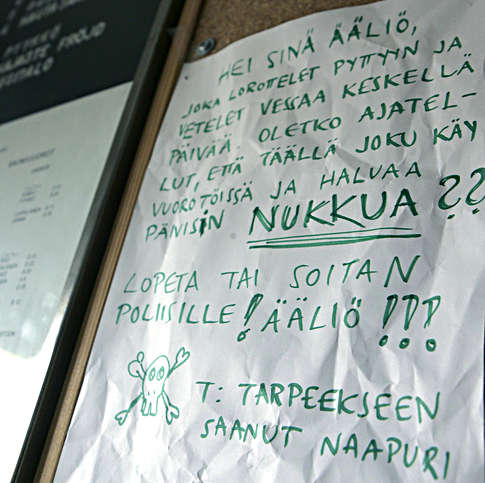 HEI SINÄ ÄÄLIÖ,
JOKA LOROTTELET PYTTYYN JA
VETELET VESSAA KESKELLÄ
PÄIVÄÄ. OLETKO AJATEL-
LUT, ETTÄ TÄÄLLÄ JOKU KÄY
VUOROTÖISSÄ JA HALUAA
PÄNISIN NUKKUA ??
LOPETA TAI SOITAN
POLIISILLE! ÄÄLIÖ !!!
T: TARPEEKSEEN
SAANUT NAAPURI